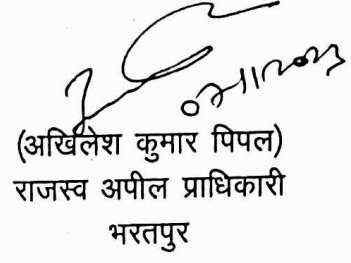 (अखिलेश कुमार पिपल)
राजस्व अपील प्राधिकारी
भरतपुर